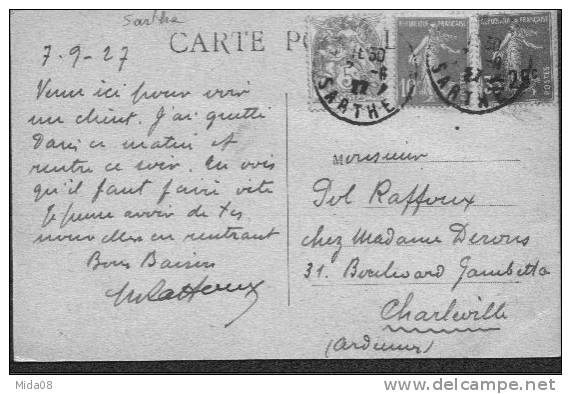 Sarthe
CARTE PO
7-9-27
Venu ici pour voir
un client. J'ai quitté
Paris ce matin et
rentre ce soir. Tu vois
qu'il faut faire vite
Je pense avoir de tes
nouvelles en rentrant
Bons Baisers
Raffoux
SARTHE
SARTHE
POSTES
Monsieur
Pol Raffoux
chez Madame Derons
31. Boulevard Gambetta
Charleville
(Ardennes)
Mida08
http://www.delcampe.net